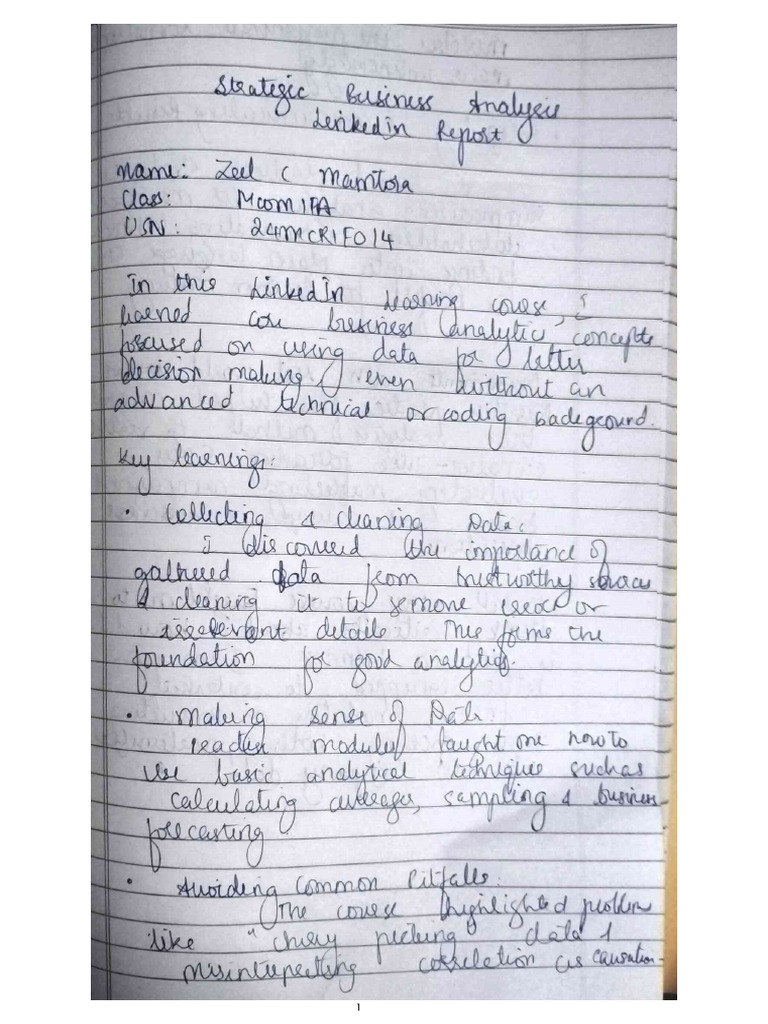 Strategic Business Analysis
Linkedin Report
Name: Zeel C Mamtora
Class: Mcom IFA
USN: 24MCRIF014
In this LinkedIn Learning course, I
learned core business analytic concepts
focused on using data for better
decision making, even without an
advanced technical or coding background.
Key learnings:
• Collecting & cleaning Data:
I discovered the importance of
gathered data from trustworthy sources
& cleaning it to remove error or
irrelevant details This forms the
foundation for good analytics.
• Making sense of Data:
modules taught me how to
use basic analytical techniques such as
calculating averages, sampling & business
forecasting
• Avoiding Common Pitfalls:
The course highlighted problem
like "cherry picking" data &
misinterpretting correlation as causation-
1